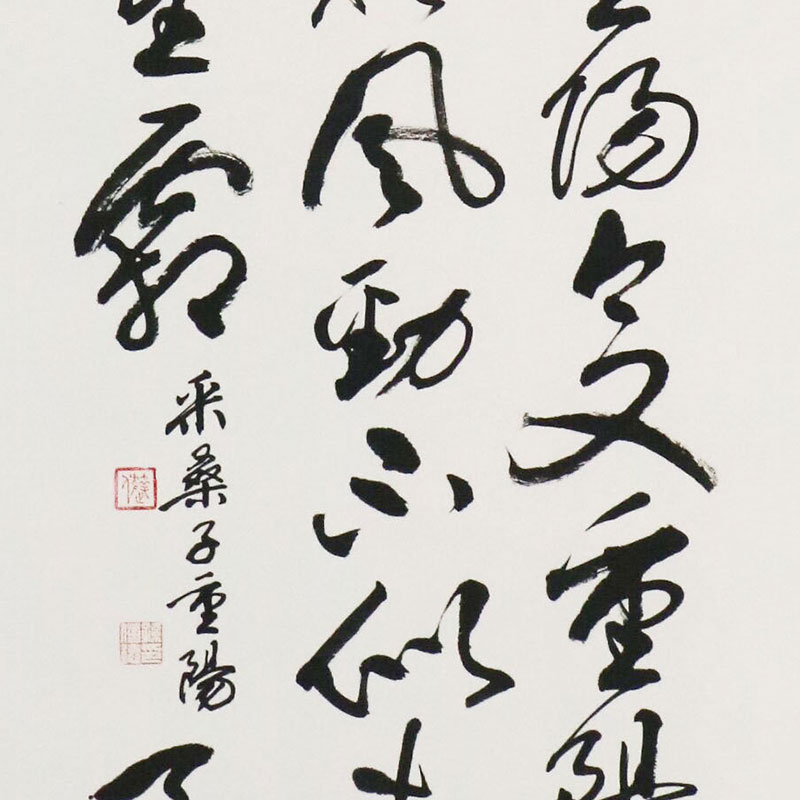 陽今又重陽
風勁不似
里霜
采桑子重陽